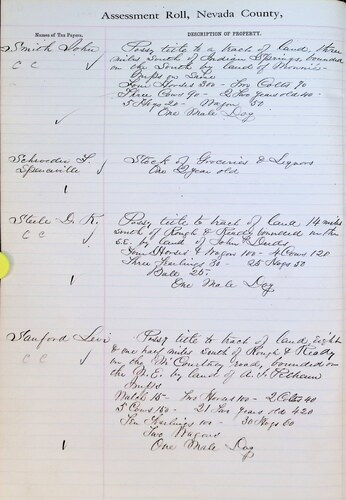 Assessment Roll, Nevada County,
Names of Tax Payers.
DESCRIPTION OF PROPERTY.
Smith John
C C
Possy title to a tract of land, three
miles South of Indian Springs, bounded
on the South by land of
Imps on Same
Four Horses 200 - Two Colts 90
Three Cows 90 - 2 Two years old 40 -
5 Hogs 20 - Wagon 50
One Male Dog
Schroeder F.
Spenceville
1
Stock of Groceries & Liquors
One 2 year old
Steele D. K.
C C
1
Possy title to tract of land 14 miles
South of Rough & Ready bounded on the
S.E. by land of John
Four Horses & Wagon 100 - 4 Cows 120
Three Yearlings 30 - 25 Hogs 50
Bull 25.
One Male Dog
Stanford Levi
C C
1
Possy title to tract of land, eight
& one half miles South of Rough & Ready
on the McCourtney road, bounded on
the N.E. by land of A. J. Pelham
Imps
Watch 15 - Two Horses 100 - 2 Colts 40
5 Cows 150 - 21 Two years old 420
Ten Yearlings 100 - 30 Hogs 60
Two Wagons
One Male Dog